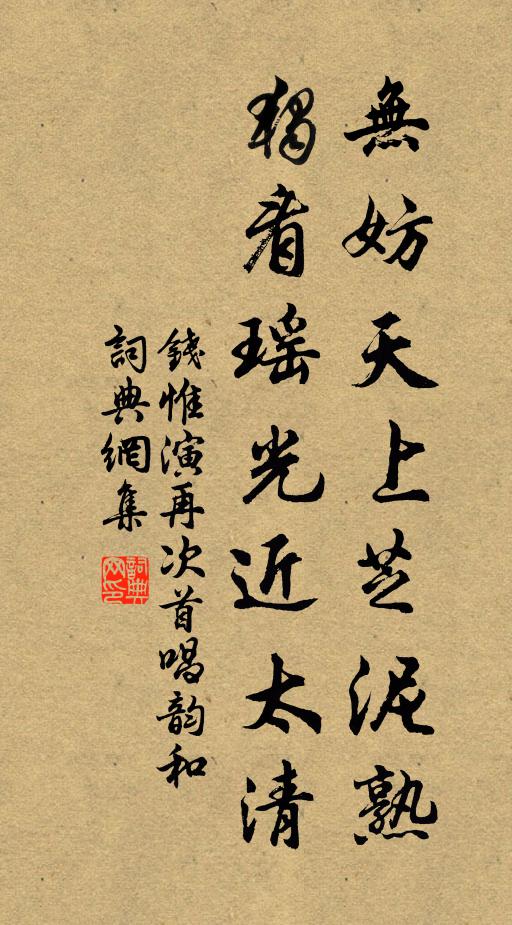 無妨天上芝泥熟
獨看瑶光近太清
錢惟演再次首唱韵和
詞典網集
詞典網印